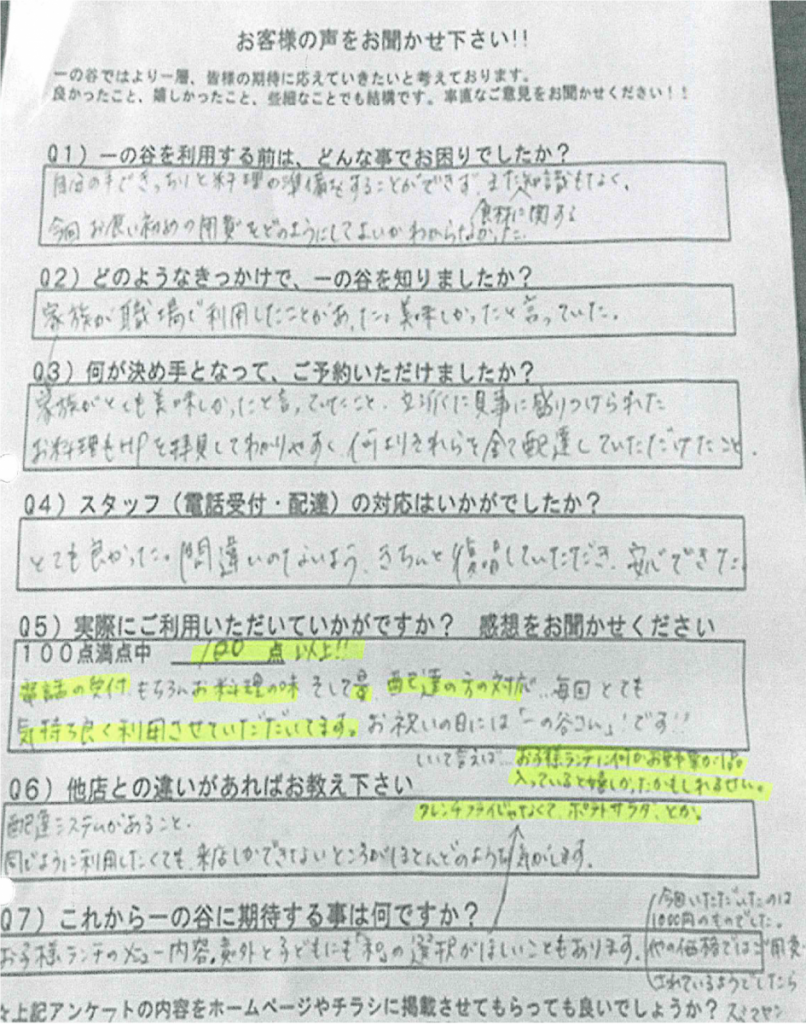 お客様の声をお聞かせ下さい!!
一の谷ではより一層、皆様の期待に応えていきたいと考えております。
良かったこと、嬉しかったこと、些細なことでも結構です。率直なご意見をお聞かせください！！
Q1）一の谷を利用する前は、どんな事でお困りでしたか？
自分の手できっちりと料理の準備をすることができず、また知識もなく、
食材に関する
今回お食い初めの用意をどのようにしてよいかわからなかった。
Q2）どのようなきっかけで、一の谷を知りましたか？
家族が職場で利用したことがあった。美味しかったと言っていた。
Q3）何が決め手となって、ご予約いただけましたか？
家族がとても美味しかったと言っていたこと、立派に見事に盛りつけられた
お料理もHPを拝見してわかりやすく、何よりそれらを全て配達していただけたこと。
Q4）スタッフ（電話受付・配達）の対応はいかがでしたか？
とても良かった。間違いのないよう、きちんと復唱していただき、安心できた。
Q5）実際にご利用いただいていかがですか？　感想をお聞かせください
100点満点中　120　点 以上!!
電話の受付もちろんお料理の味そして量、配達の方の対応…毎回とても
気持ち良く利用させていただいてます。お祝いの日には「一の谷さん」！です!!
しいて言えば…お子様ランチに何かお野菜が
入っていると嬉しかったかもしれません。
フレンチフライじゃなくて、ポテトサラダ、とか。
Q6）他店との違いがあればお教え下さい
配達システムがあること。
同じように利用したくても、来店しかできないところがほとんどのような気がします。
Q7）これから一の谷に期待する事は何ですか？
お子様ランチのメニュー内容。意外と子どもにも「和」の選択がほしいこともあります。
今回いただいたのは
1000円のものでした。
他の価格ではご用意
されているようでしたら
スミマセン
上記アンケートの内容をホームページやチラシに掲載させてもらっても良いでしょうか？